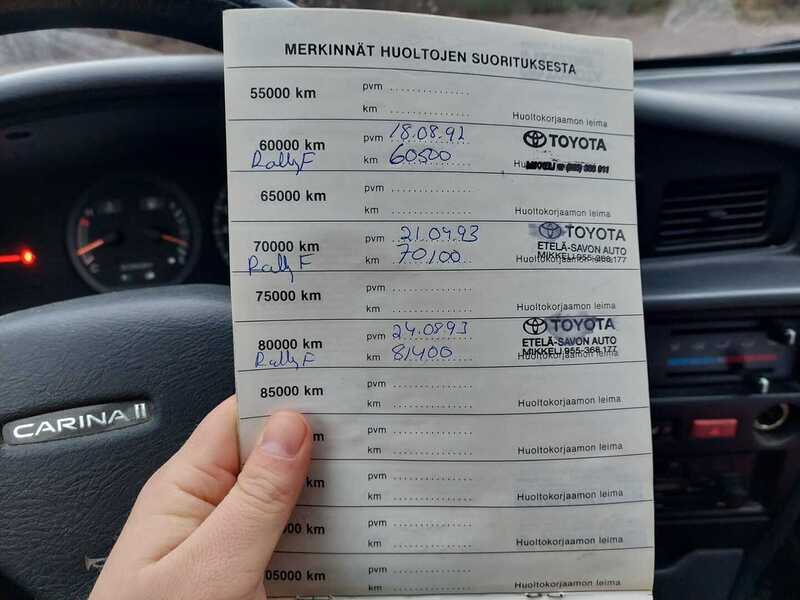 MERKINNÄT HUOLTOJEN SUORITUKSESTA
55000 km pvm
km Huoltokorjaamon leima
60000 km pvm 18.08.92 TOYOTA
Rally F km 60500 MIKKELI
65000 km pvm
km Huoltokorjaamon leima
70000 km pvm 21.04.93 TOYOTA
ETELÄ-SAVON AUTO
Rally F km 70100 MIKKELI 955-368 177
75000 km pvm
km Huoltokorjaamon leima
80000 km pvm 24.08.93 TOYOTA
ETELÄ-SAVON AUTO
Rally F km 81400 MIKKELI 955-368 177
85000 km pvm
km Huoltokorjaamon leima
CARINA II
m pvm
km Huoltokorjaamon leima
km pvm
km Huoltokorjaamon leima
000 km pvm
km Huoltokorjaamon leima
05000 km pvm
km Huoltokorjaamon leima